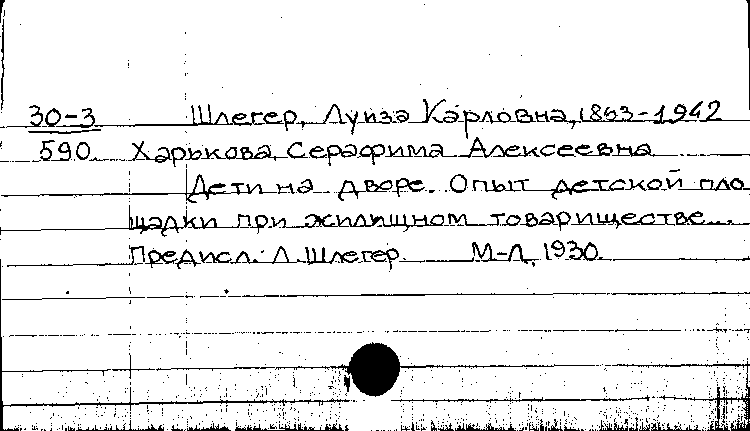 30-3 Шлегер, Луиза Карловна, 1863-1942
590. Харькова, Серафима Алексеевна
Дети на дворе. Опыт детской пло
щадки при жилищном товариществе...
Предисл.: Л. Шлегер. М-Л, 1930.